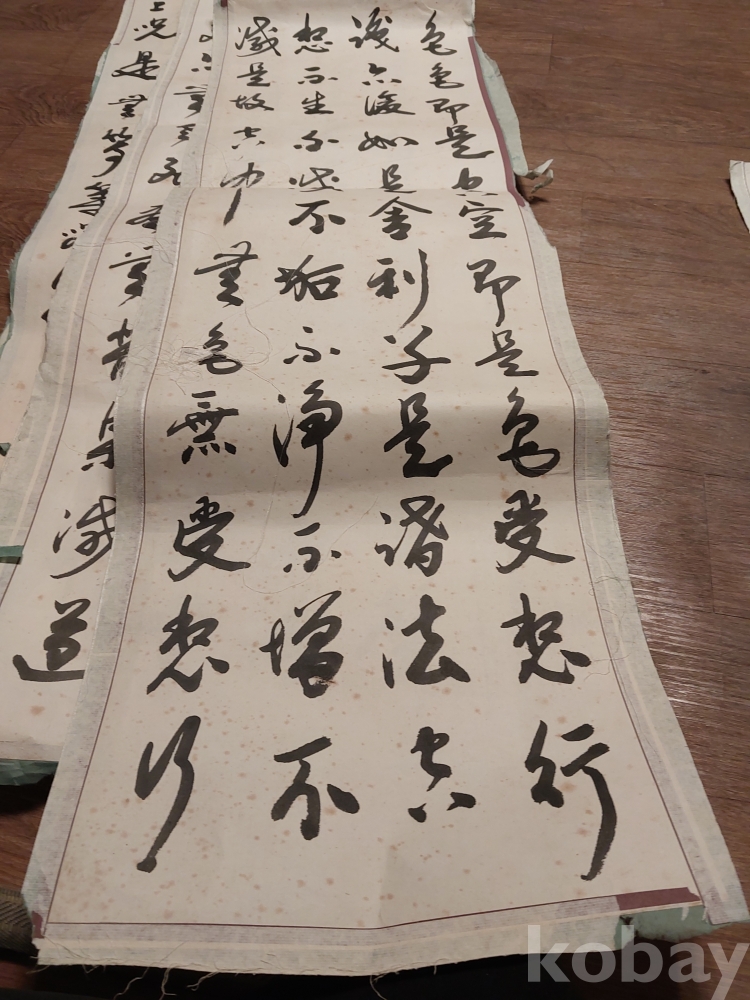 色色即是空空即是色受想行
識亦復如是舍利子是諸法空
想不生不滅不垢不淨不增不
滅是故空中無色無受想行
無苦集滅道
上咒是無等等咒
kobay